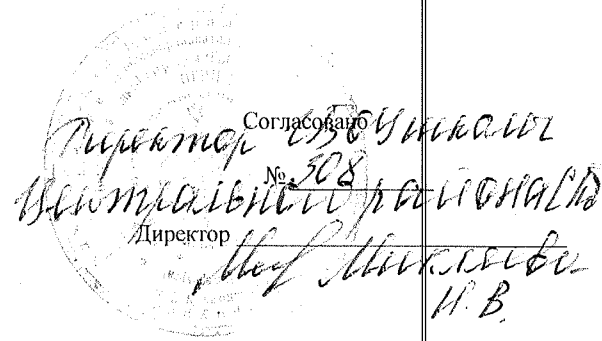 Согласовано
Директор ГБОУ школы
№ 308
Центрального района СПб
Директор
Микляева
Н.В.